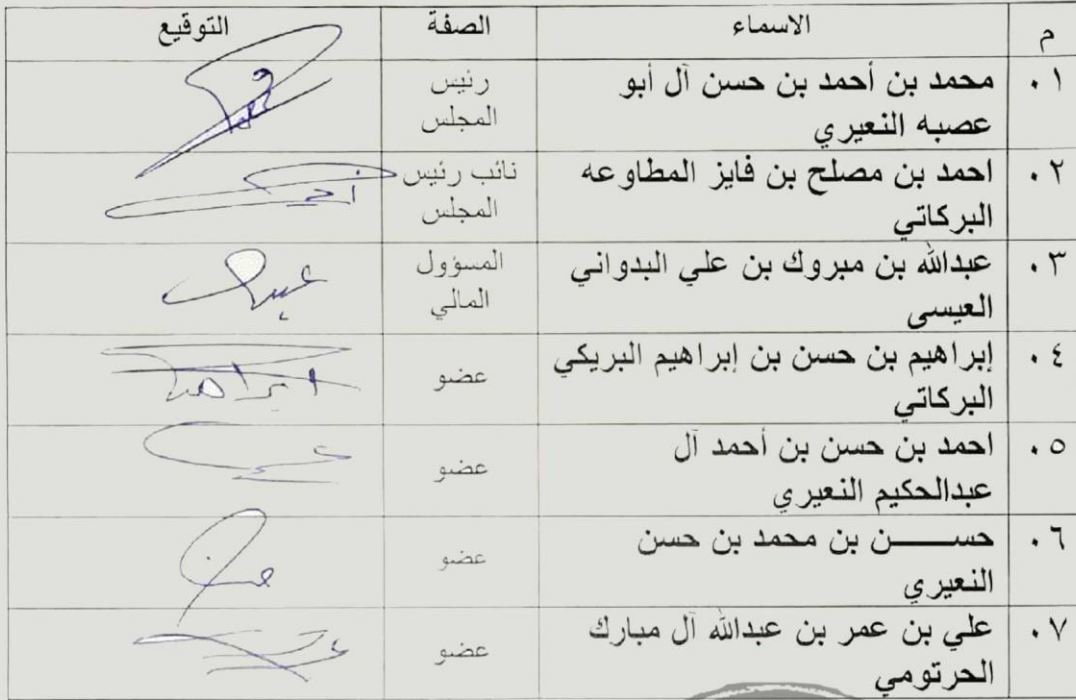 م الاسماء الصفة التوقيع
٠١ محمد بن أحمد بن حسن آل أبو عصبه النعيري رئيس المجلس
٠٢ احمد بن مصلح بن فايز المطاوعه البركاتي نائب رئيس المجلس
٠٣ عبدالله بن مبروك بن علي البدواني العيسى المسؤول المالي
٠٤ إبراهيم بن حسن بن إبراهيم البريكي البركاتي عضو ابراهيم
٠٥ احمد بن حسن بن أحمد آل عبدالحكيم النعيري عضو
٠٦ حســــن بن محمد بن حسن النعيري عضو
٠٧ علي بن عمر بن عبدالله آل مبارك الحرتومي عضو